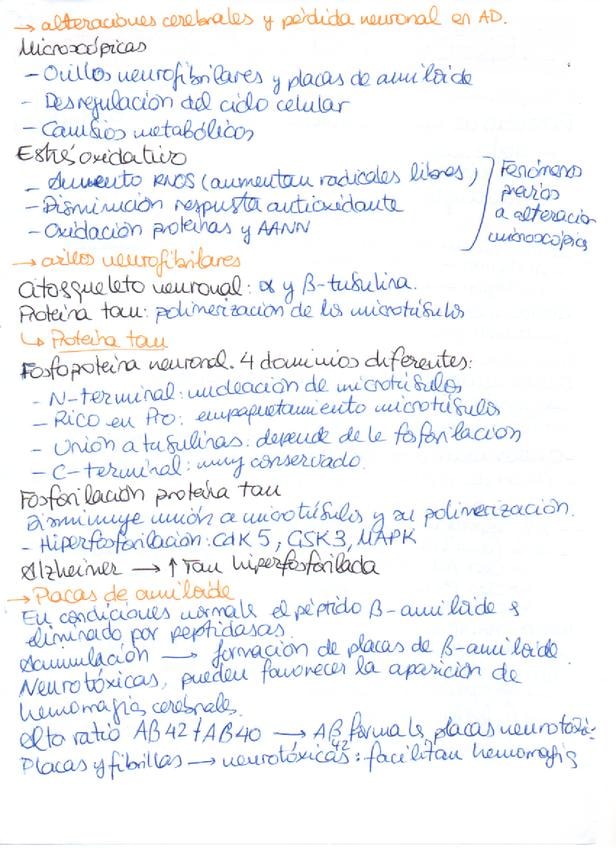 → alteraciones cerebrales y pérdida neuronal en AD.
Microscópicas
- Ovillos neurofibrilares y placas de amiloide
- Desregulación del ciclo celular
- Cambios metabólicos
Estrés oxidativo
- Aumento RNOS (aumentan radicales libres)
- Disminución respuesta antioxidante
- Oxidación proteínas y AANN
Fenómenos
previos
a alteración
microscópica
→ ovillos neurofibrilares
Citoesqueleto neuronal: α y β-tubulina.
Proteína tau: polimerización de los microtúbulos
↳ Proteína tau
Fosfoproteína neuronal. 4 dominios diferentes:
- N-terminal: nucleación de microtúbulos
- Rico en Pro: empaquetamiento microtúbulos
- Unión a tubulinas: depende de la fosforilación
- C-terminal: muy conservado.
Fosforilación proteína tau
Disminuye unión a microtúbulos y su polimerización.
- Hiperfosforilación: CdK5, GSK3, MAPK
Alzheimer → ↑ Tau hiperfosforilada
→ Placas de amiloide
En condiciones normales el péptido β-amiloide es
eliminado por peptidasas.
Acumulación → formación de placas de β-amiloide
Neurotóxicas, pueden favorecer la aparición de
hemorragias cerebrales.
Alto ratio AB42/AB40 → AB42 forma las placas neurotóxic.
Placas y fibrillas → neurotóxicas: facilitan hemorragias